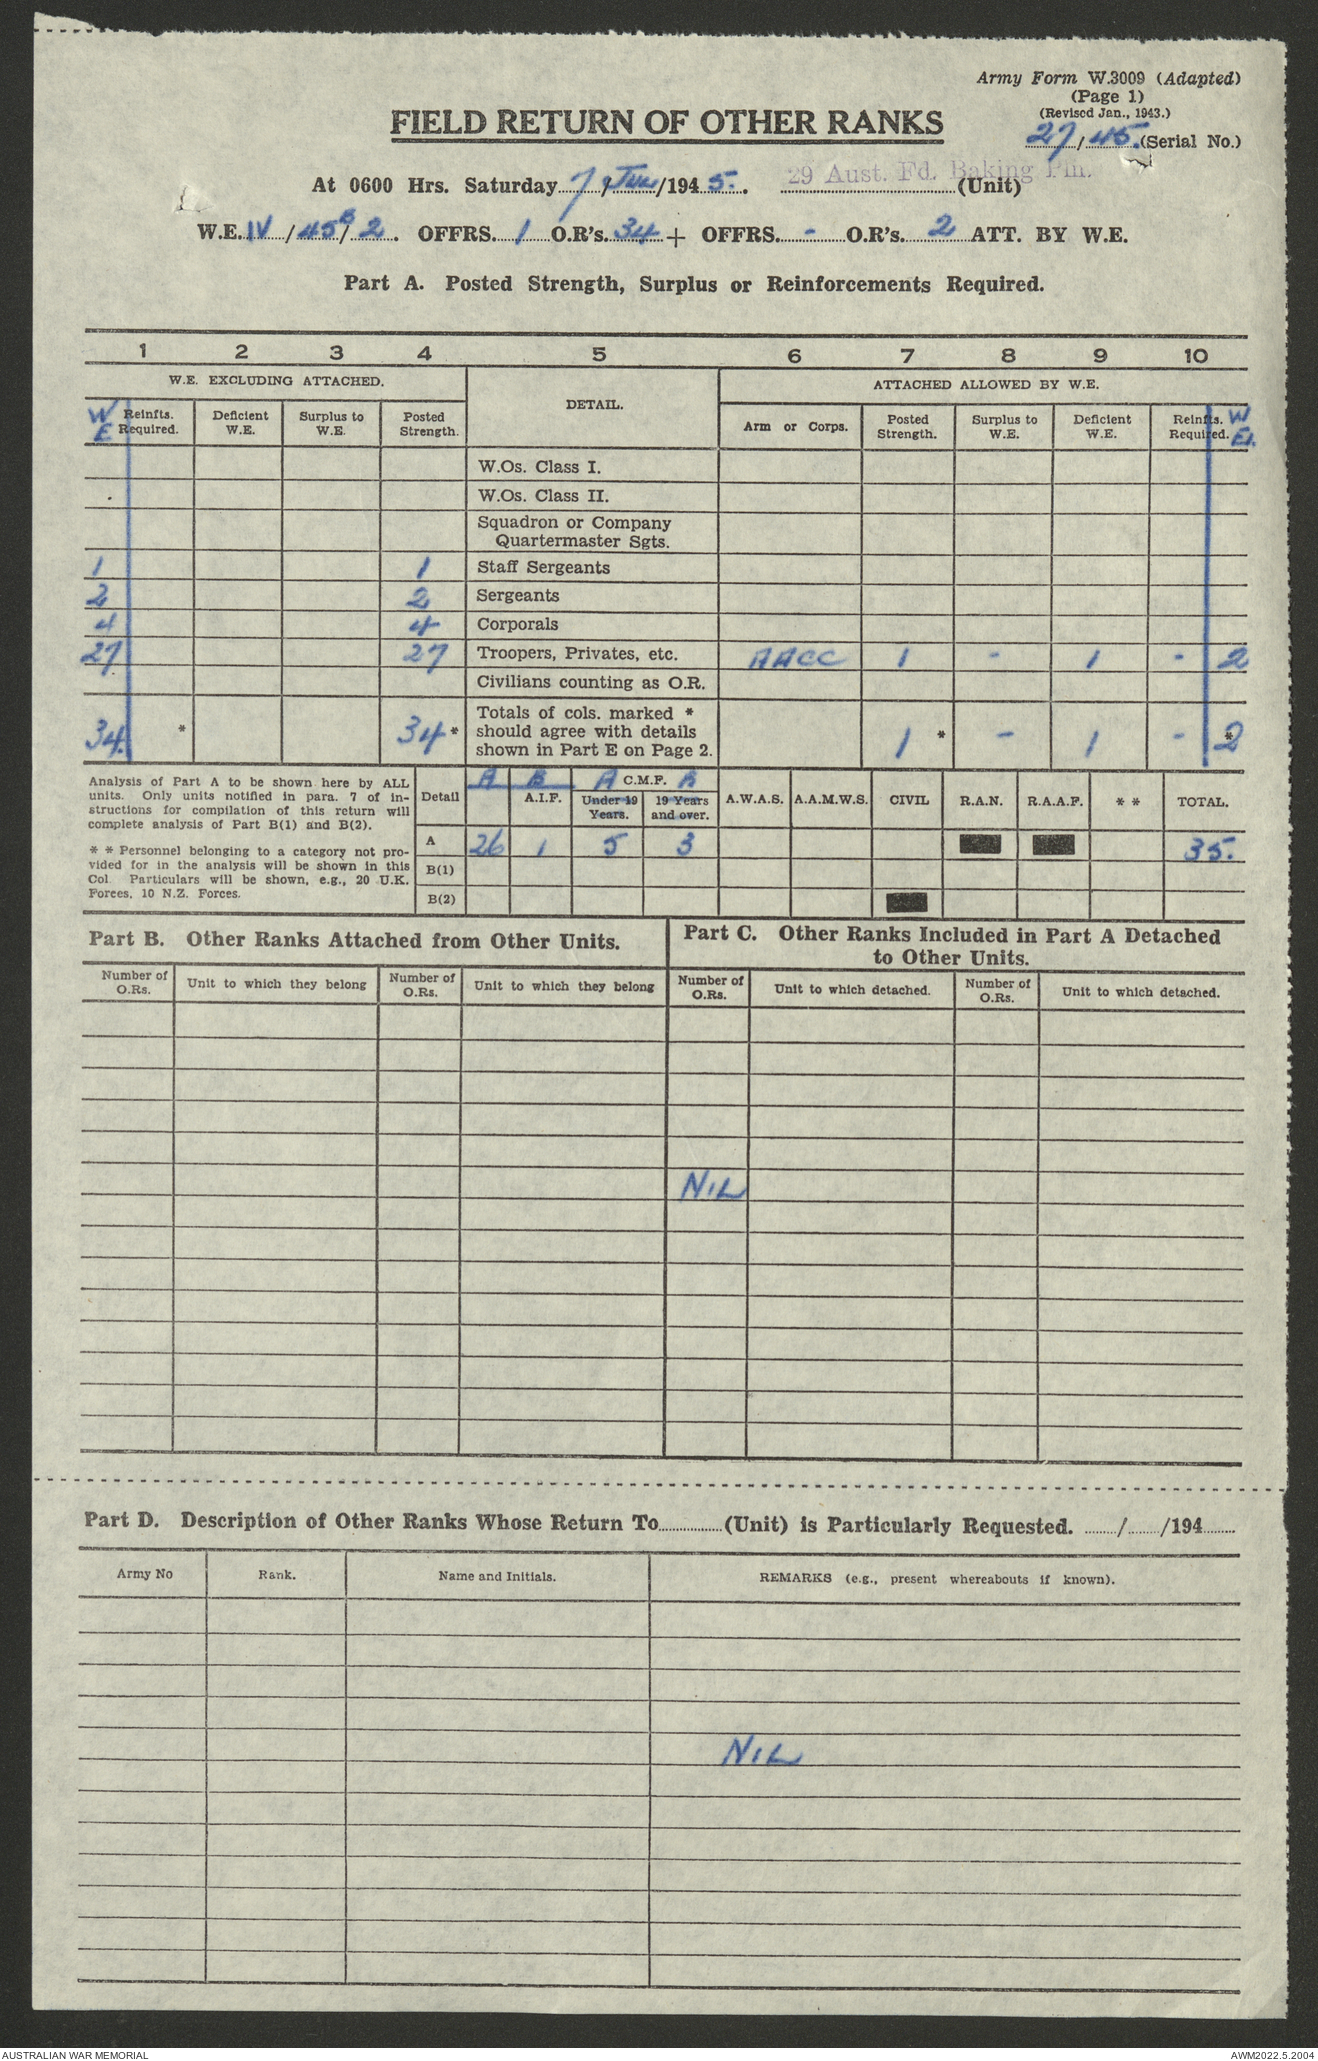 Army Form W.3009 (Adapted)
(Page 1)
(Revised Jan., 1943.)
FIELD RETURN OF OTHER RANKS
27/45. (Serial No.)
At 0600 Hrs. Saturday 7/Jul/1945. 29 Aust. Fd. Baking Pln. (Unit)
W.E. IV/45B/2. OFFRS. 1 O.R's. 34 + OFFRS. - O.R's. 2 ATT. BY W.E.
Part A. Posted Strength, Surplus or Reinforcements Required.
1 2 3 4 5 6 7 8 9 10
W.E. EXCLUDING ATTACHED. DETAIL. ATTACHED ALLOWED BY W.E.
W E Reinfts. Required. Deficient W.E. Surplus to W.E. Posted Strength. Arm or Corps. Posted Strength. Surplus to W.E. Deficient W.E. Reinfts. Required. W E.
W.Os. Class I.
W.Os. Class II.
Squadron or Company
Quartermaster Sgts.
1 1 Staff Sergeants
2 2 Sergeants
4 4 Corporals
27 27 Troopers, Privates, etc. AACC 1 - 1 - 2
Civilians counting as O.R.
34. * 34 * Totals of cols. marked * should agree with details shown in Part E on Page 2. 1 * - 1 - 2 *
Analysis of Part A to be shown here by ALL
units. Only units notified in para. 7 of in-
structions for compilation of this return will
complete analysis of Part B(1) and B(2).
* * Personnel belonging to a category not pro-
vided for in the analysis will be shown in this
Col. Particulars will be shown, e.g., 20 U.K.
Forces, 10 N.Z. Forces.
A B A C.M.F. B
Detail A.I.F. Under 19 Years. 19 Years and over. A.W.A.S. A.A.M.W.S. CIVIL R.A.N. R.A.A.F. * * TOTAL.
A 26 1 5 3 35.
B(1)
B(2)
Part B. Other Ranks Attached from Other Units.
Part C. Other Ranks Included in Part A Detached
to Other Units.
Number of O.Rs. Unit to which they belong Number of O.Rs. Unit to which they belong Number of O.Rs. Unit to which detached. Number of O.Rs. Unit to which detached.
NIL
Part D. Description of Other Ranks Whose Return To (Unit) is Particularly Requested. / /194
Army No Rank. Name and Initials. REMARKS (e.g., present whereabouts if known).
NIL
AUSTRALIAN WAR MEMORIAL AWM2022.5.2004